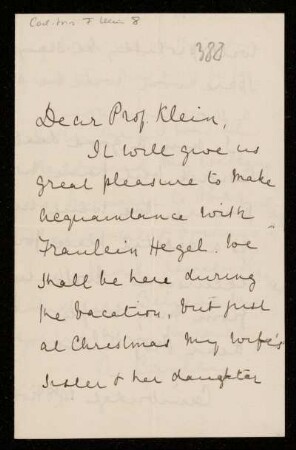 Cod. Ms. F. Klein 8
388
Dear Prof. Klein,
It will give us
great pleasure to make
acquaintance with
Fraulein Hegel. We
shall be here during
the Vacation, but just
at Christmas my wife's
sister & her daughter